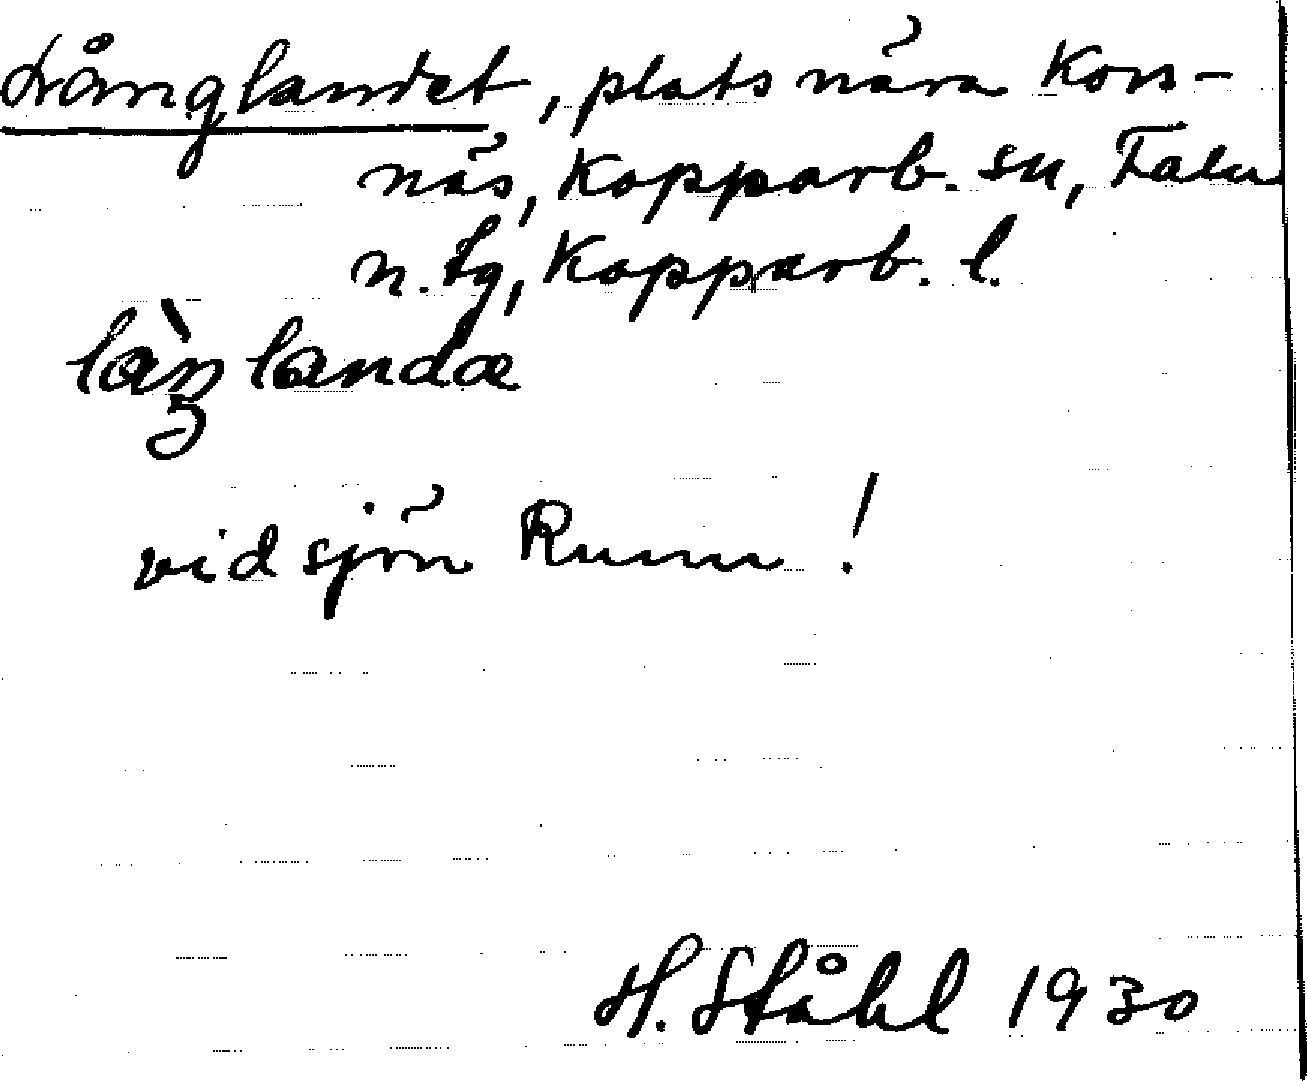 Långlandet, plats nära Kors-
näs, Kopparb. sn, Falu
n. tg, Kopparb. l.
làŋlandæ
vid sjön Runn!
H. Ståhl 1930